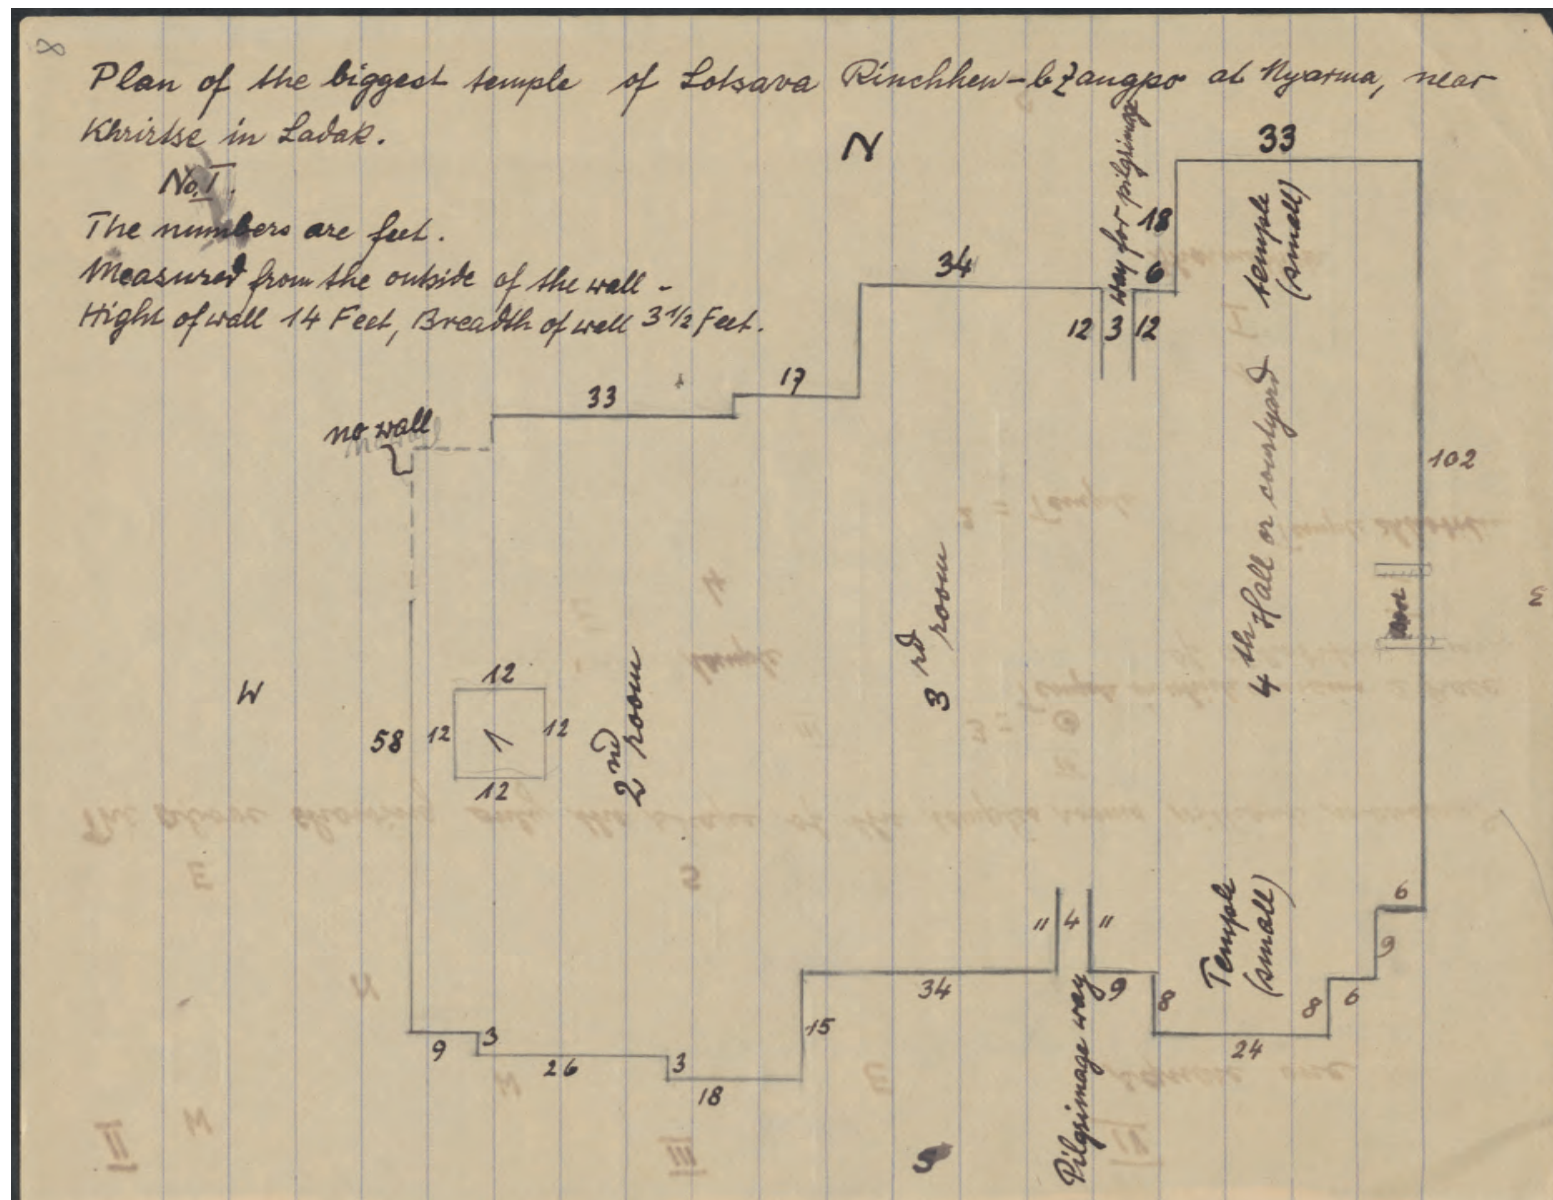 8
Plan of the biggest temple of Lotsava Rinchhen-bZangpo at Nyarma, near
Khrirtse in Ladak.
N
No. I.
The numbers are feet.
Measured from the outside of the wall -
Hight of wall 14 Feet, Breadth of wall 3 1/2 Feet.
33
way for pilgrimage
18
temple
(small)
34
6
12 3 12
17
33
no wall
102
4th Hall or courtyard
3rd room
2nd room
W
58
12
12 1 12
12
Temple
(small)
6
9
11 4 11
34
9
8
8
6
24
15
Pilgrimage way
9
3
26
3
18
S